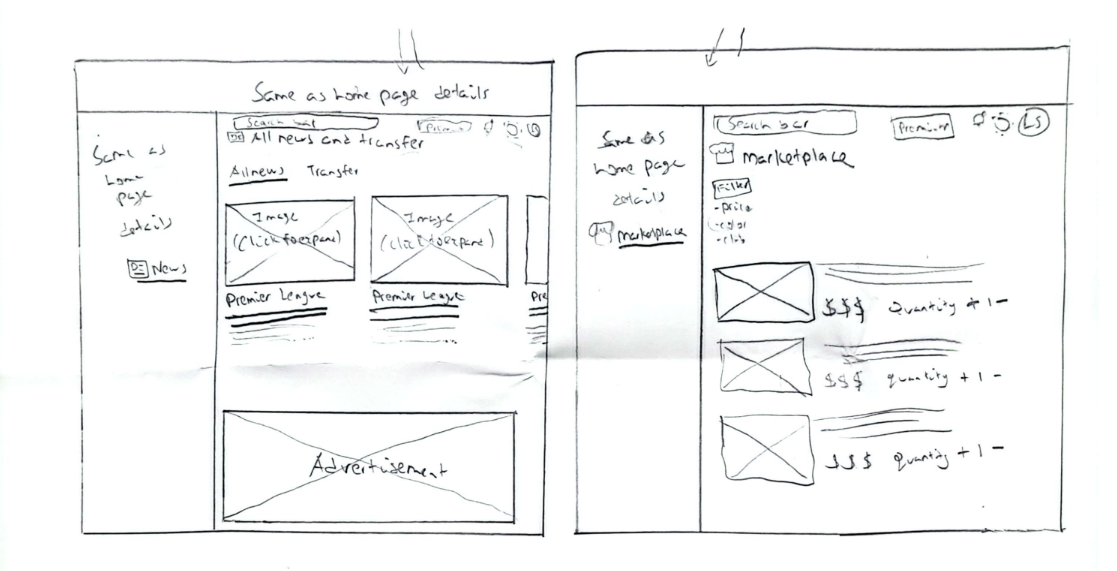 Same as home page details
Same as
home
page
details
News
Search bar
Premium
LS
All news and transfer
All news Transfer
Image
(Click to expand)
Image
(Click to expand)
Premier League
Premier League
Pre
Advertisement
Same as
home page
details
marketplace
Search bar
Premium
LS
marketplace
Filter
-price
-color
-club
$$$ Quantity + 1 -
$$$ quantity + 1 -
$$$ quantity + 1 -